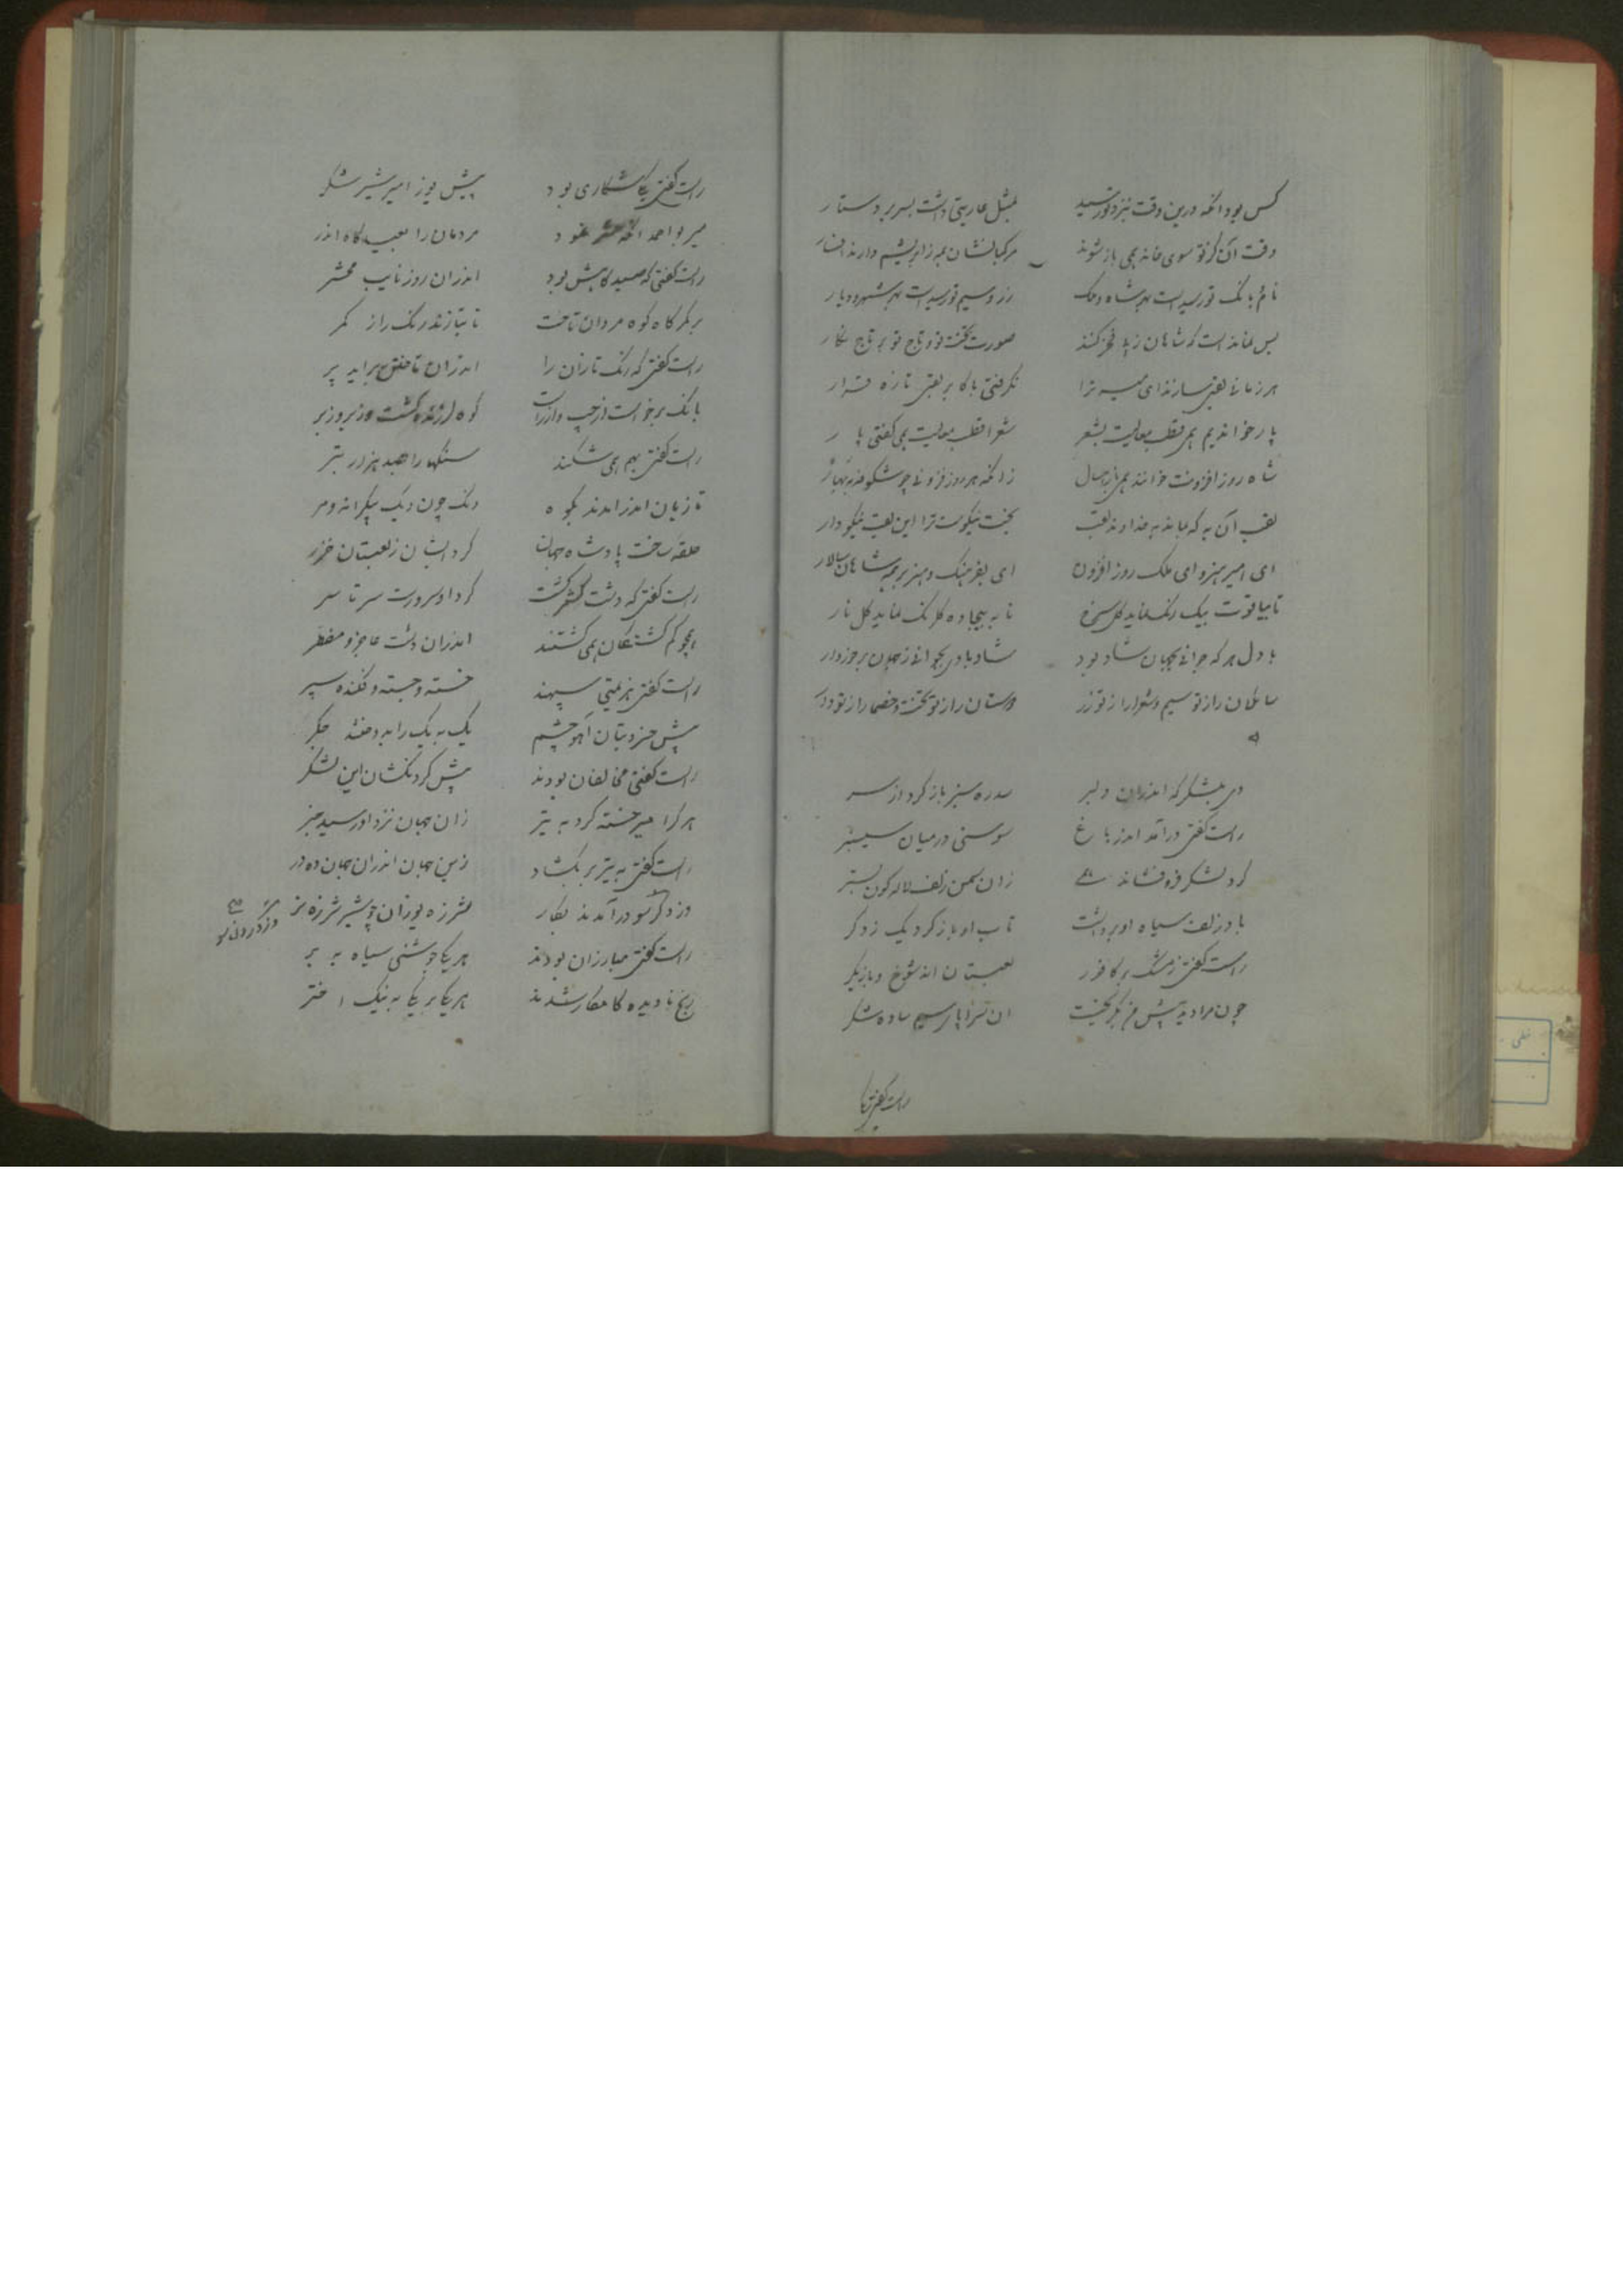 کس بود انکه درین وقت بنزد تو رسید بمثل عاریتی داشت بسر بر دستار
وقت آن کز تو سوی خانه همی باز شوند مرکبانشان همه زابریشم دارند افسار
نام با نک تو رسیدست بهر شاه و ملک زر و سیم تو رسیدست بهر شهر و دیار
بس نمانده است که شاهان ز پی فخر کنند صورت تخت تو و تاج تو بر تاج نگار
هر زمانی لقبی سازند ای میر ترا نگرفتی بلقبی تازه قرار
پار خواندیم همی قطب معالیت بشعر شعرا قطب معالیت همی گفتی پار
شاه روز افزونت خوانند همی
لقب آن به که بماند بخداوند لقب بخت نیکوست ترا این لقبت نیکو دار
ای امیر هنر و ای ملک روز افزون ای بفرهنگ و هنر بر همه شاهان سالار
تا بیاقوت بیک رنگ نماید گل سرخ تا به بیجاده گل رنگ نماید گل نار
با دل هر که جوانی بجهان شاد بود شاد بادی بجوانی ز جهان برخوردار
سائلان را ز تو سیم و شعرا را ز تو زر دوستان را ز تو تخت و خصما را ز تو دار
دی بلشکر که اندران دلبر سدره سبز باز کرد از سر
راست گفتی در آمد اندر باغ سوسنی در میان سیسنبر
گرد لشکر فرو فشاند همی زان سمن زلف لاله گون بستر
باد زلف سیاه او برداشت تاب او باز کرد یک ز دگر
راست گفتی ز مشک بر کافور لعبتان اند شوخ و بازیگر
چون مرا دید پیش من بگریخت ان سراپای سیم ساده شکر
راست گفتی یکی شکاری بود پیش یوز امیر شیر شکر
میر بو احمد مردمان را بصیدگاه اندر
راست گفتی که صیدگاهش بود اندران روز نایب محشر
بر کمرگاه کوه مردان تاخت تا بتازند رنگ را ز کمر
راست گفتی که رنگ تازان را اندران تاختن برآید پر
بانگ برخواست از چپ و از راست کوه لرزنده گشت و زیر و زبر
راست گفتی بهم همی شکنند سنگها را بصد هزار تبر
تازیان اندر آمدند بکوه رنگ چون دیگ بیکرانه و مر
حلقه ساخت پادشاه جهان گرد ایشان ز لعبتان خزر
راست گفتی که دشت کشتی گشت گرد او سروست سر تا سر
همچو گم گشتگان همی گشتند اندران دشت عاجز و مضطر
راست گفتی هزیمتی سپهند خسته و جسته و فکنده سپر
پیش خسرو بتان آهو چشم یک بیک را بدوختند جگر
راست گفتی مخالفان بودند پیش گردنکشان این لشکر
هر کرا میر خسته کرد به تیر زان جهان نزد او رسید خبر
راست گفتی به تیر بر بگشاد زین جهان اندران جهان ده در
وز دگر سو درآمدند بکار شرزه یوزان چو شیر شرزه نر
راست گفتی مبارزان بودند هر یکی جوشنی سیاه به بر
رنج نادیده کامکار شدند هر یکی بر یکی به نیک اختر
راست گفتی